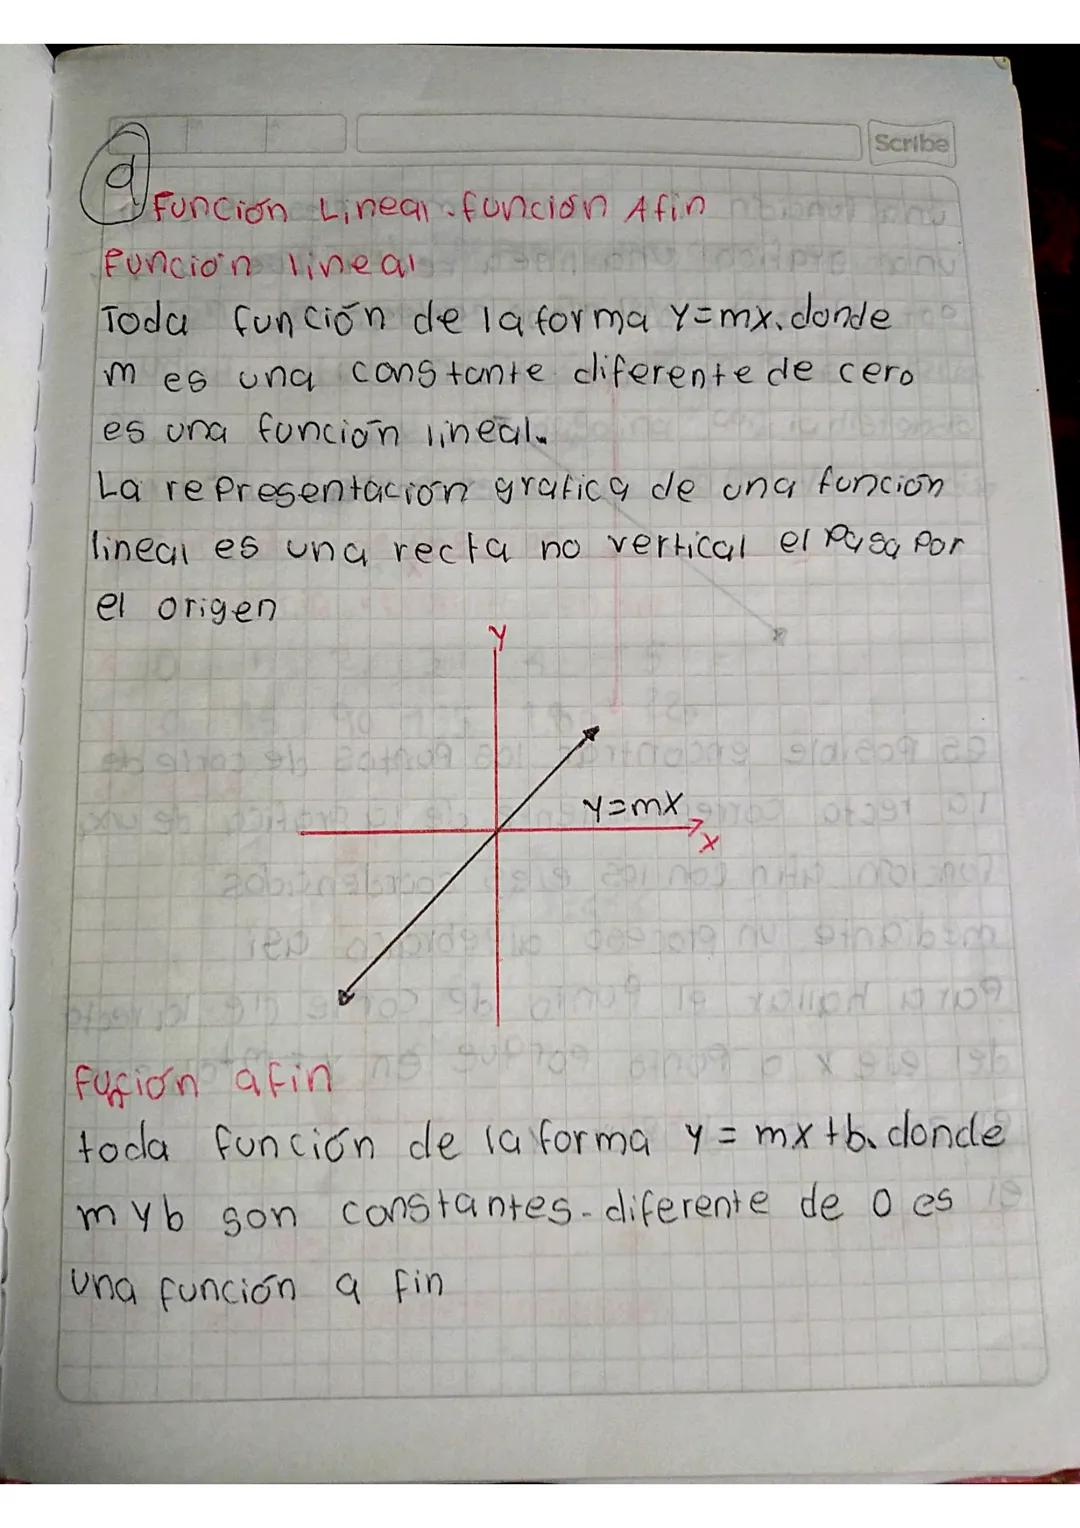 Scribe
a
Función Lineal. función Afin
Función lineal
Toda función de la forma y=mx. donde
m es una constante diferente de cero
es una función lineal.
La representación grafica de una función
lineal es una recta no vertical el pasa por
el origen
y
y=mx
x
Fución afin
toda función de la forma y = mx+b. donde
m y b son constantes-diferente de 0 es
una función a fin